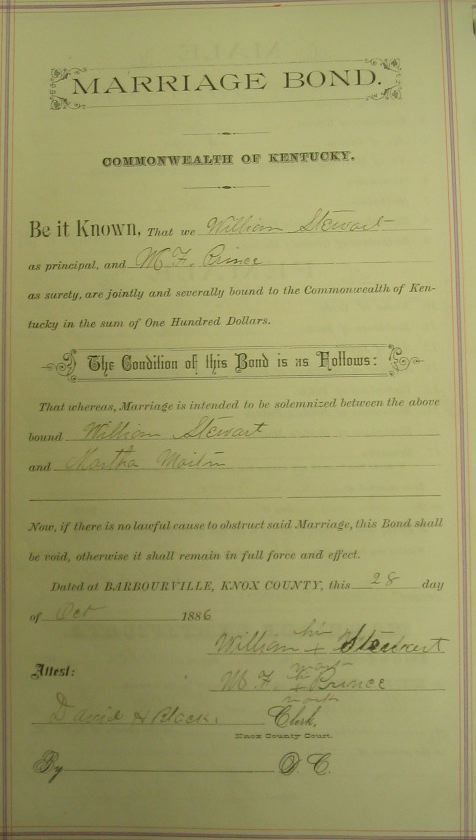 MARRIAGE BOND.
COMMONWEALTH OF KENTUCKY.
Be it Known, That we William Stewart
as principal, and M. F. Prince
as surety, are jointly and severally bound to the Commonwealth of Ken-
tucky in the sum of One Hundred Dollars.
The Condition of this Bond is as Follows:
That whereas, Marriage is intended to be solemnized between the above
bound William Stewart
and Martha
Now, if there is no lawful cause to obstruct said Marriage, this Bond shall
be void, otherwise it shall remain in full force and effect.
Dated at BARBOURVILLE, KNOX COUNTY, this 28 day
of Oct 1886
his
William + Stewart
mark
Attest:
M. F. + Prince
mark
David H Black. Clerk.
Knox County Court.
By D. C.